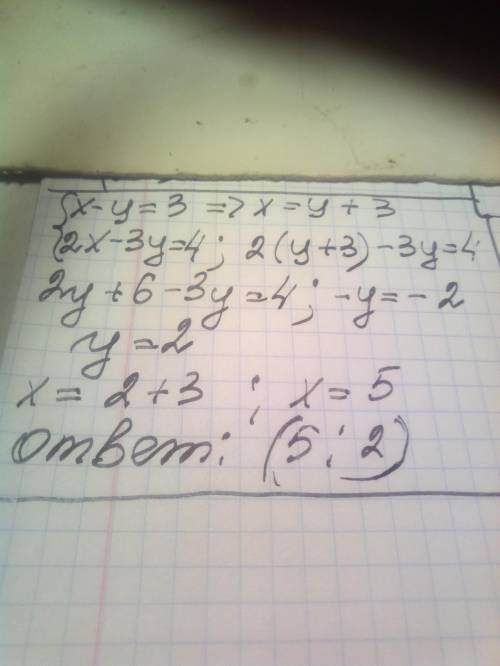 {x-y=3 => x=y+3
{2x-3y=4; 2(y+3)-3y=4
2y+6-3y=4; -y=-2
y=2
x=2+3; x=5
ответ: (5; 2)